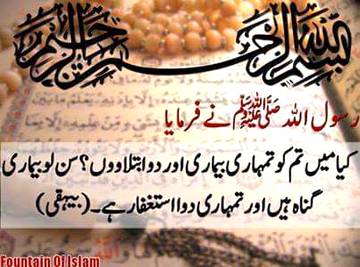 بسم الله الرحمن الرحيم
رسول اللہ ﷺ نے فرمایا
کیا میں تم کو تمہاری بیماری اور دوا بتلاووں؟ سن لو بیماری
گناہ ہیں اور تمہاری دوا استغفار ہے۔ (بیہقی)
Fountain Of Islam